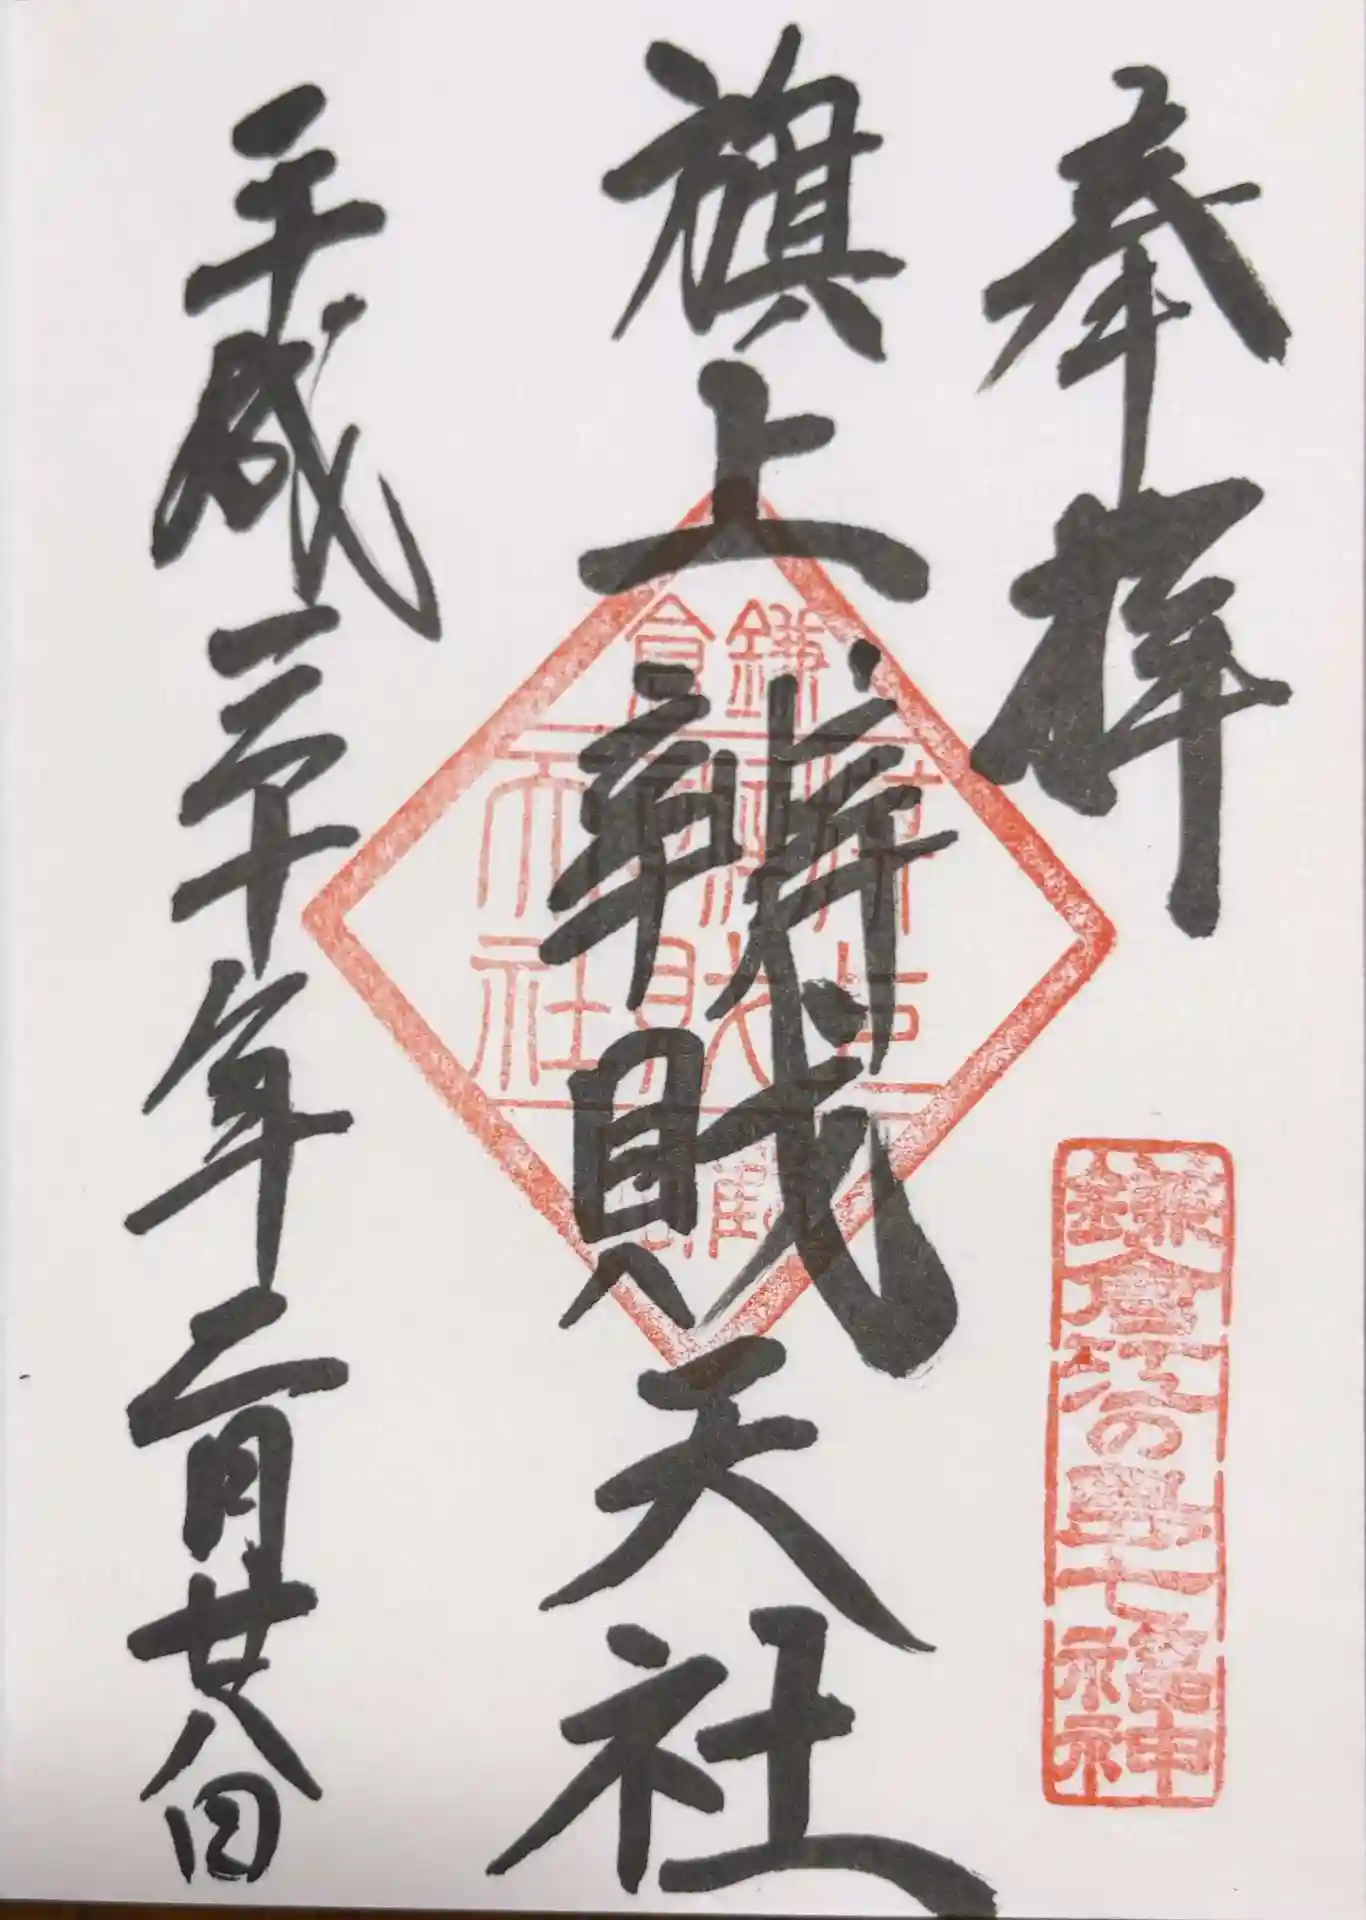 奉拝
鎌倉江の島七福神
旗上辨財天社
鎌倉
旗上
辨財
天社
平成三十年二月廿八日